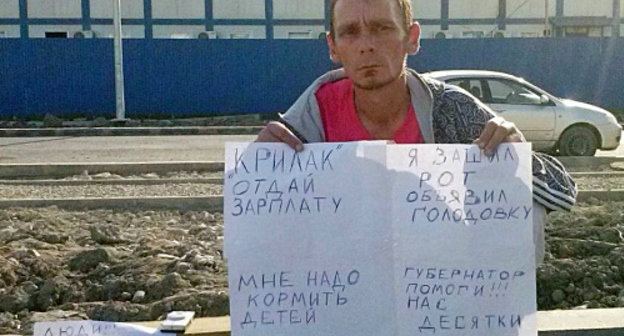 "КРИЛАК"
ОТДАЙ
ЗАРПЛАТУ
МНЕ НАДО
КОРМИТЬ
ДЕТЕЙ
Я ЗАШИЛ
РОТ
ОБЪЯВИЛ
ГОЛОДОВКУ
ГУБЕРНАТОР
ПОМОГИ!!!
НАС
ДЕСЯТКИ
ЛЮДИ!!